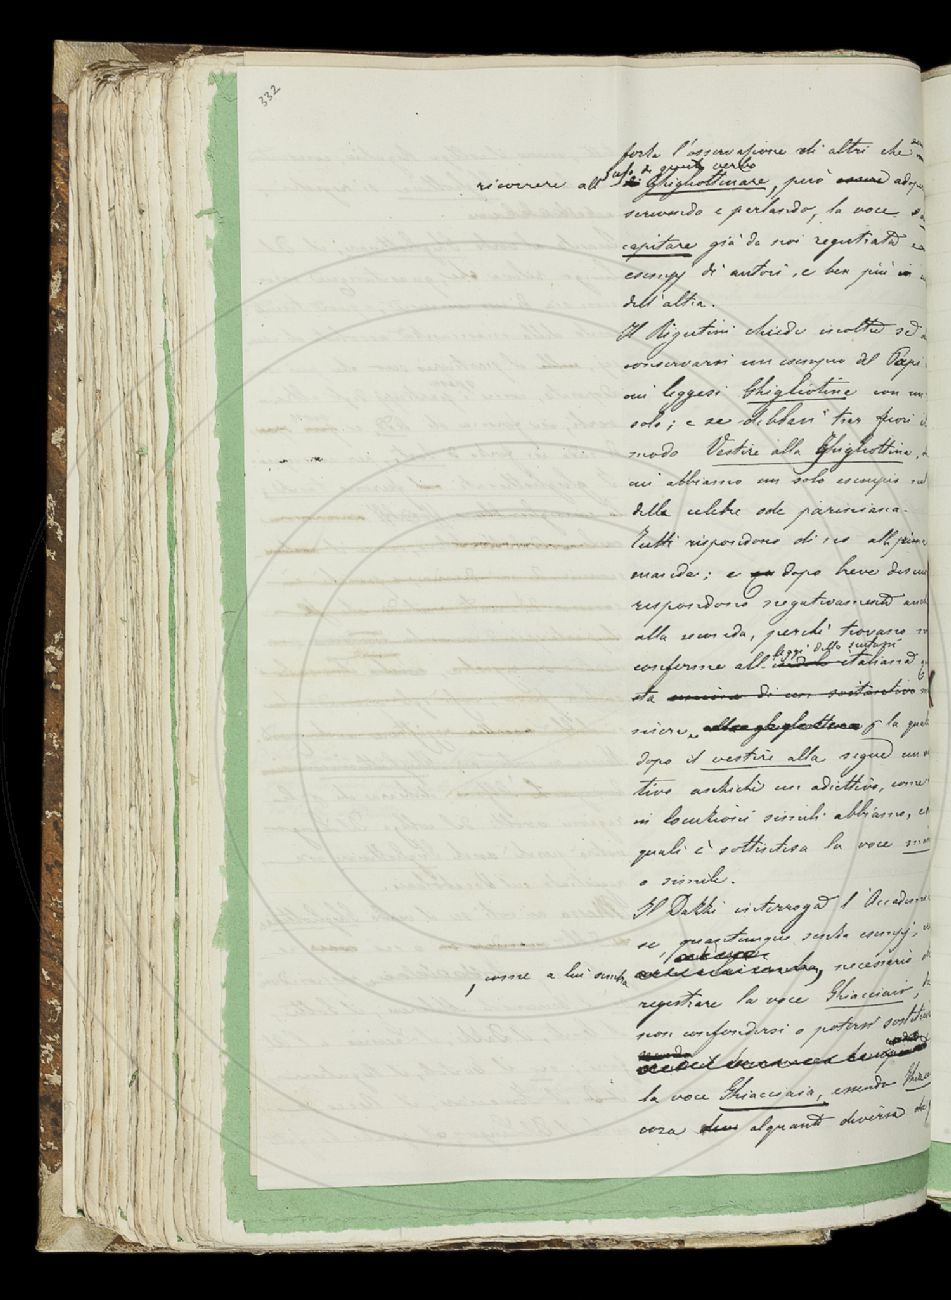 332
forte l'osservazione di altri che
ricorrere all'uso di questo verbo
Ghigliottinare, però adop
scrivendo e parlando, la voce
capitare già da noi registrata
esempj di autori, e ben più
dell'altra.
Il Rigutini chiede ascolto
conservarsi un esempio del Papi
cui leggesi Ghigliotina con un
solo; e se debbasi trar fuori il
modo Vestire alla Ghigliottina,
cui abbiamo un solo esempio
della celebre ode pariniana.
Tutti rispondono di no alla prima
manda; e dopo breve discus
rispondono negativamente anch
alla seconda, perchè trovano
conforme alle leggi della sintassi italiana
sta
niera, la quale
dopo il vestire alla segue un
tivo anzichè un adiettivo, come
in locuzioni simili abbiamo,
quali è sottintesa la voce
o simile.
Il Dazzi interroga l'Accademia
se quantunque senza esempj,
, come a lui sembra, necessario
registrare la voce Ghiacciaio,
non confondersi o potersi sostituire
la voce Ghiacciaia, essendo
cosa alquanto diversa